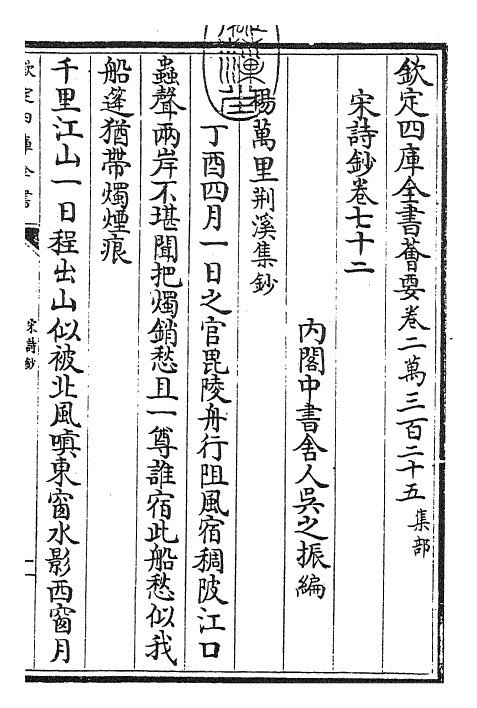 欽定四庫全書薈要卷二萬三百二十五 集部
宋詩鈔卷七十二
內閣中書舍人吳之振編
楊萬里荆溪集鈔
丁酉四月一日之官毘陵舟行阻風宿稠陂江口
蟲聲兩岸不堪聞把燭銷愁且一尊誰宿此船愁似我
船篷猶帶燭煙痕
千里江山一日程出山似被北風嗔東窗水影西窗月
欽定四庫全書
宋詩鈔
一